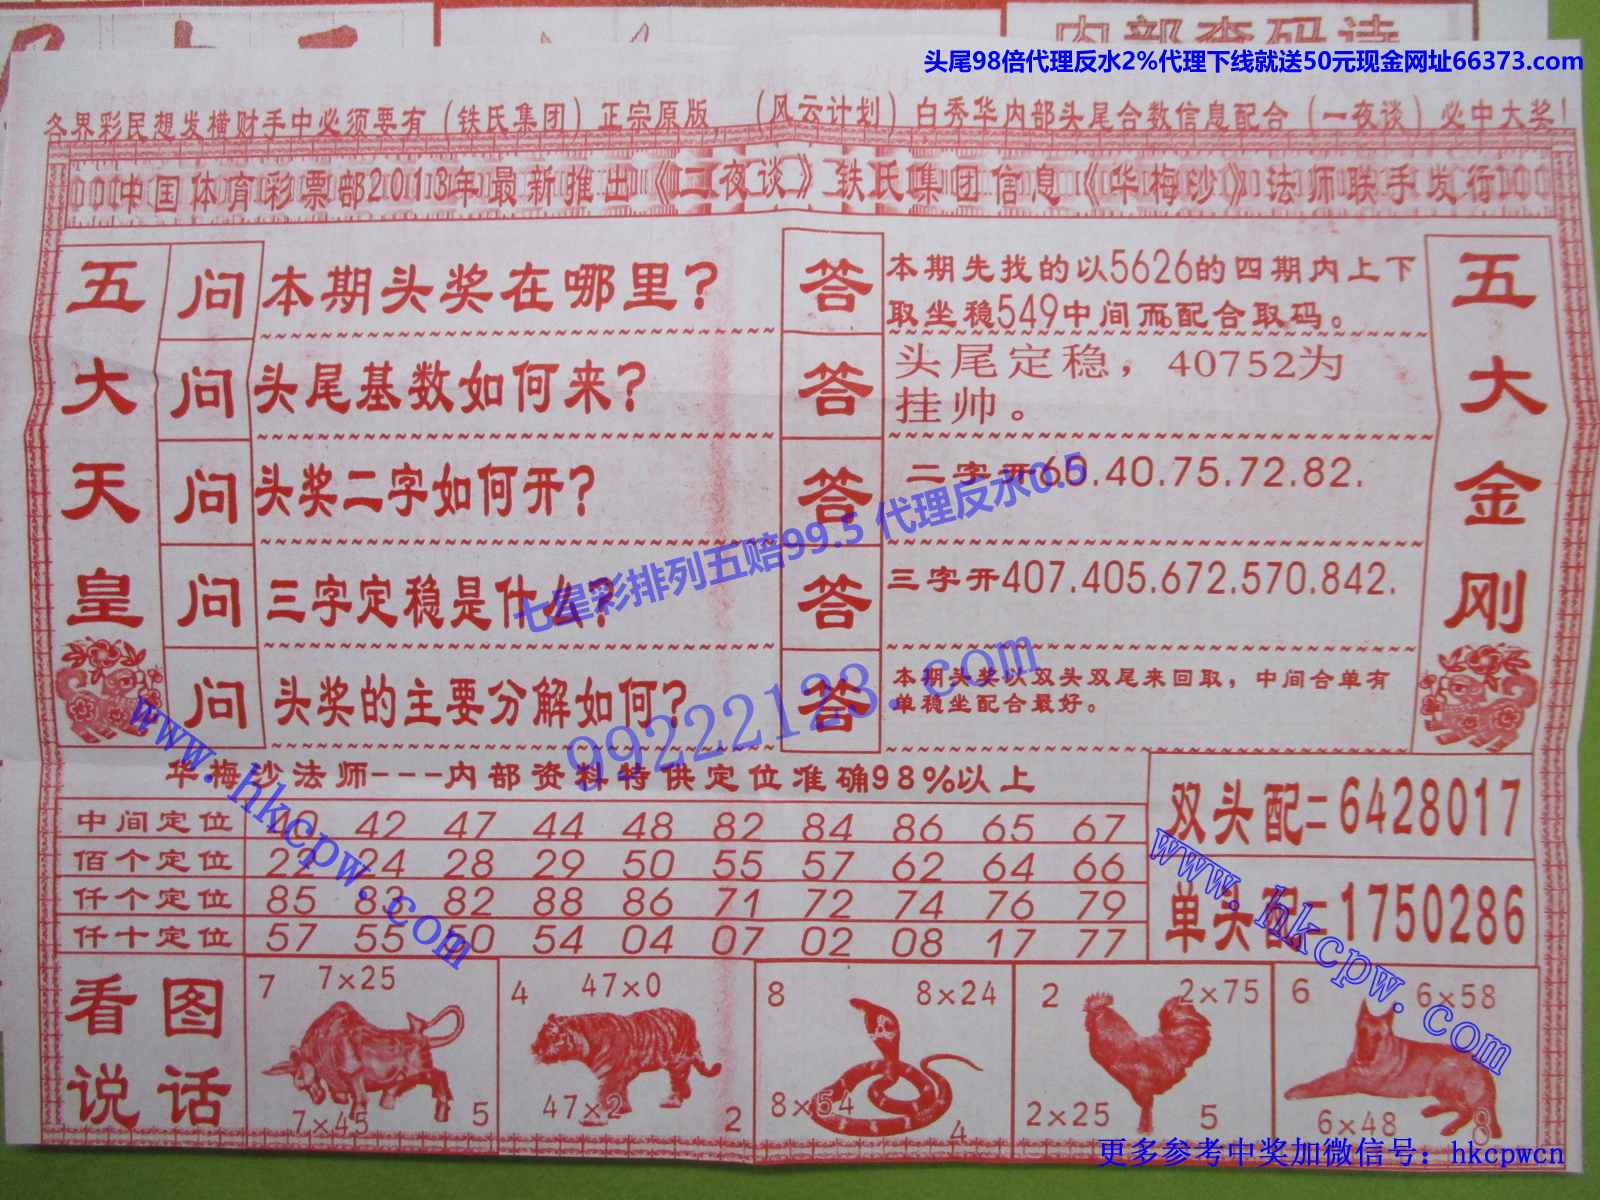 内部杏码诗
头尾98倍代理反水2%代理下线就送50元现金网址66373.com
各界彩民想发横财手中必须要有（铁氏集团）正宗原版，（风云计划）白秀华内部头尾合数信息配合（一夜谈）必中大奖！
中国体育彩票部2013年最新推出《二夜谈》铁氏集团信息《华梅沙》法师联手发行
五大天皇
问 本期头奖在哪里？
答 本期先找的以5626的四期内上下
取坐稳549中间而配合取码。
问 头尾基数如何来？
答 头尾定稳，40752为
挂帅。
问 头奖二字如何开？
答 二字开65.40.75.72.82.
问 三字定稳是什么？
答 三字开407.405.672.570.842.
问 头奖的主要分解如何？
答 本期头奖以双头双尾来回取，中间合单有
单稳坐配合最好。
五大金刚
七星彩排列五赔99.5 代理反水0.5
99222123.com
www.hkcpw.com
华梅沙法师---内部资料特供定位准确98%以上
中间定位 40 42 47 44 48 82 84 86 65 67
佰个定位 27 24 28 29 50 55 57 62 64 66
仟个定位 85 83 82 88 86 71 72 74 76 79
仟十定位 57 55 50 54 04 07 02 08 17 77
双头配=6428017
单头配=1750286
www.hkcpw.com
看图
说话
7 7×25
7×45 5
4 47×0
47×2 2
8 8×24
8×54 4
2 2×75
2×25 5
6 6×58
6×48 8
更多参考中奖加微信号：hkcpwcn